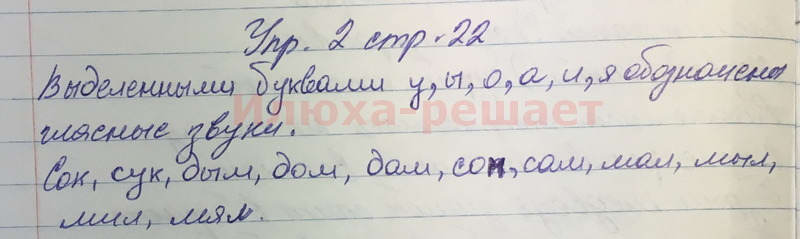 Упр. 2 стр. 22
Выделенными буквами у, ы, о, а, и, я обозначены
Илюха-решает
гласные звуки.
Сок, сук, дым, дом, дам, сон, сам, мал, мыл,
мил, мял.